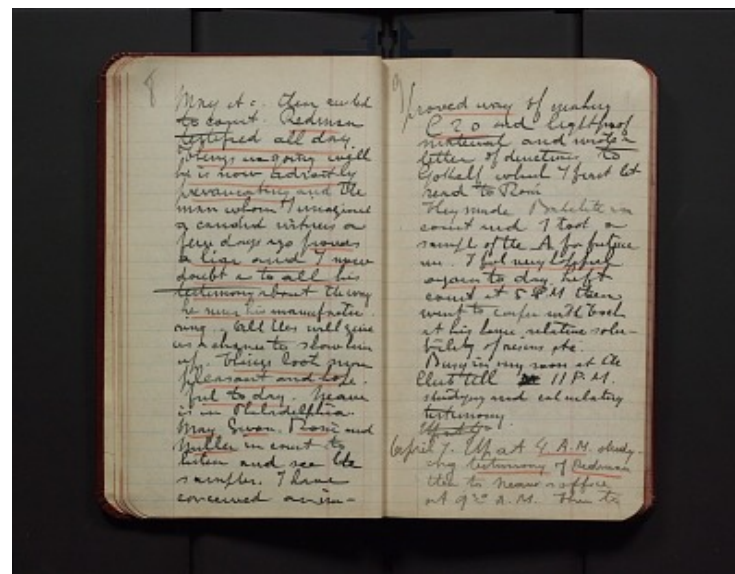 8
May etc. then called
to court. Redman
testified all day.
Things are going well
he is now adroitly
prevaricating and the
man whom I imagined
a candid witness a
few days ago proves
a liar and I now
doubt as to all his
testimony about the way
he runs his manufactu
ring. All this will give
us a chance to show him
up. Things look more
pleasant and hope-
ful to day. Neave
is in Philadelphia.
May, Swan, Rossi and
Muller in court to
listen and see the
samples. I have
conceived an im-
9
proved way of making
C20 and lightproof
material and wrote a
letter of directions to
Gothelf which I first let
read to Rossi
They made Bakelite in
court and I took a
sample of the A for future
use. I feel very hopeful
again to day. Left
court at 5 P.M. then
went to confer with
at his home relative solu-
bility of resins etc.
Busy in my room at the
Club till 11 P.M.
studying and calculating
testimony.
April 7. Up at 4 A.M. study-
ing testimony of Redman
then to Neave's office
at 9:30 A.M. Then to